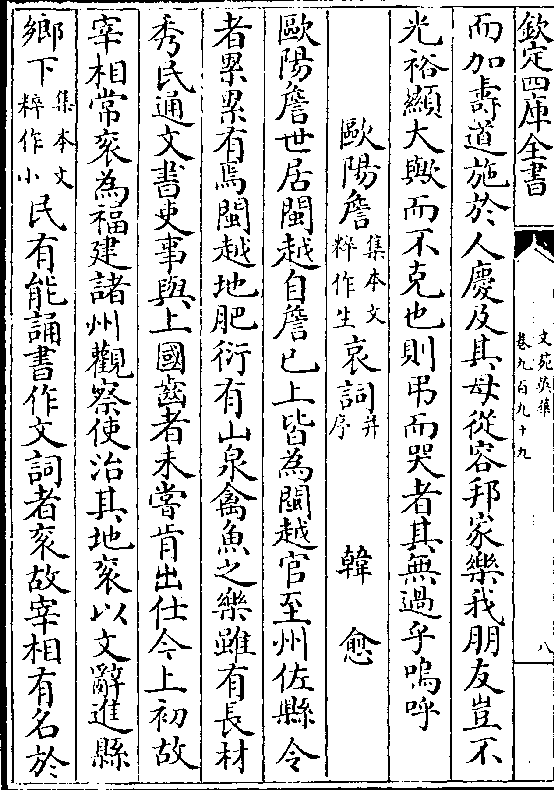 欽定四庫全書
文苑英華
卷九百九十九
八
而加壽道施於人慶及其母從容邦家樂我朋友豈不
光裕顯大歟而不克也則弔而哭者其無過乎嗚呼
歐陽詹集本文粹作生哀詞并序 韓愈
歐陽詹世居閩越自詹已上皆為閩越官至州佐縣令
者累累有焉閩越地肥衍有山泉禽魚之樂雖有長材
秀民通文書吏事與上國齒者未嘗肯出仕今上初故
宰相常衮為福建諸州觀察使治其地衮以文辭進縣
鄉下集本文粹作小民有能誦書作文詞者衮故宰相有名於